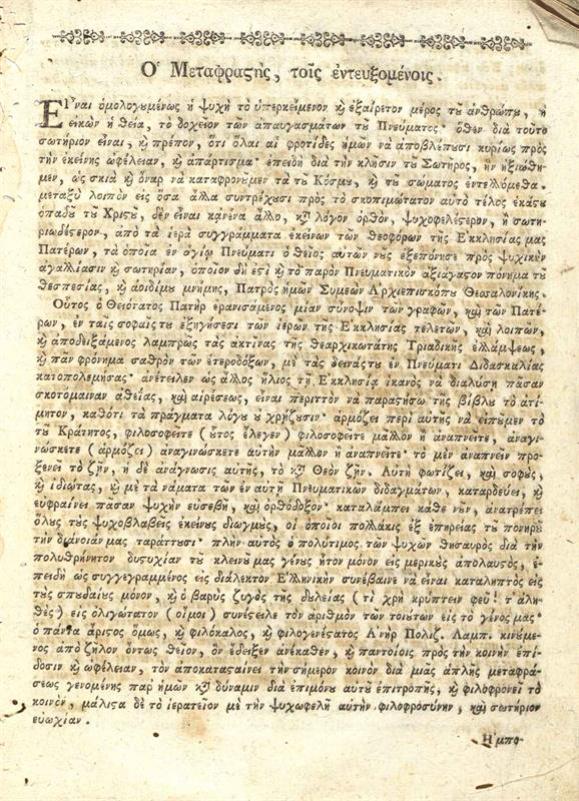 Ὁ Μεταφραστὴς, τοῖς ἐντευξομένοις.
Εἶναι ὁμολογουμένως ἡ ψυχὴ τὸ ὑπερκείμενον ϗ ἐξαίρετον μέρος τοῦ ἀνθρώπου, ἡ
εἰκὼν ἡ θεία, τὸ δοχεῖον τῶν ἀπαυγασμάτων τοῦ Πνεύματος· ὅθεν διὰ τοῦτο
σωτήριον εἶναι, ϗ πρέπον, ὅτι ὅλαι αἱ φροτίδες ἡμῶν νὰ ἀποβλέπουσι κυρίως πρὸς
τὴν ἐκείνης ὠφέλειαν, ϗ ἀπάρτισμα· ἐπειδὴ διὰ τὴν κλῆσιν τοῦ Σωτῆρος, ἣν ἠξιώθη-
μεν, ὡς σκιὰ ϗ ὄναρ νὰ καταφρονῶμεν τὰ τοῦ Κόσμου, ϗ τοῦ σώματος ἐντελλόμεθα.
μεταξὺ λοιπὸν εἰς ὅσα ἄλλα συντρέχουσι πρὸς τὸ σκοπιμώτατον αὐτὸ τέλος ἑκάστου
ὀπαδοῦ τοῦ Χριστοῦ, δὲν εἶναι κανένα ἄλλο, ϗ λόγον ὀρθὸν, ψυχοφελέστερον, ἢ σωτη-
ριωδέστερον, ἀπὸ τὰ ἱερὰ συγγράμματα ἐκείνων τῶν Θεοφόρων τῆς Ἐκκλησίας μας
Πατέρων, τὰ ὁποῖα ἐν ἁγίῳ Πνεύματι ὁ θεῖος αὐτῶν νοῦς ἐξεπόνησε πρὸς ψυχικὴν
ἀγαλλίασιν ϗ σωτηρίαν, ὁποῖον δή ἐστι ϗ τὸ παρὸν Πνευματικὸν ἀξιάγαστον πόνημα τοῦ
Θεσπεσίας, ϗ ἀοιδίμου μνήμης, Πατρὸς ἡμῶν Συμεὼν Ἀρχιεπισκόπου Θεσσαλονίκης.
Οὗτος ὁ Θειότατος Πατὴρ ἐρανισάμενος μίαν σύνοψιν τῶν γραφῶν, καὶ τῶν Πατέ-
ρων, ἐν ταῖς σοφαῖς του ἐξηγήσεσι τῶν ἱερῶν τῆς Ἐκκλησίας τελετῶν, καὶ λοιπῶν,
ϗ ἀποδειξάμενος λαμπρῶς τὰς ἀκτῖνας τῆς Θεαρχικωτάτης Τριαδικῆς ἐλλάμψεως,
ϗ πᾶν φρόνημα σαθρὸν τῶν ἑτεροδόξων, μὲ τὰς ἐν Πνεύματι Διδασκαλίας
κατοπολεμήσας· ἀνέτειλεν ὡς ἄλλος ἥλιος τῇ Ἐκκλησίᾳ ἱκανὸς νὰ διαλύσῃ πᾶσαν
σκοτόμαιναν ἀθεΐας, καὶ αἱρέσεως, εἶναι περιττὸν νὰ παραστήσω τῆς βίβλου τὸ ἀτί-
μητον, καθότι τὰ πράγματα λόγου οὐ χρῄζουσιν· ἁρμόζει περὶ αὐτῆς νὰ εἴπωμεν τὸ
τοῦ Κράτητος, φιλοσοφεῖτε (οὗτος ἔλεγεν) φιλοσοφεῖτε μᾶλλον ἢ ἀναπνεῖτε, ἀναγι-
νώσκετε (ἁρμόζει) ἀναγινώσκετε αὐτὴν μᾶλλον ἢ ἀναπνεῖτε· τὸ μὲν ἀναπνεῖν προ-
ξενεῖ τὸ ζῇν, ἡ δὲ ἀνάγνωσις αὐτῆς, τὸ κατὰ Θεὸν ζῇν. Αὐτὴ φωτίζει, καὶ σοφοὺς,
ϗ ἰδιώτας, ϗ μὲ τὰ νάματα τῶν ἐν αὐτῇ Πνευματικῶν διδαγμάτων, καταρδεύει, ϗ
εὐφραίνει πᾶσαν ψυχὴν εὐσεβῆ, καὶ ὀρθόδοξον· καταλάμπει κάθε νοῦν, ἀνατρέπει
ὅλους τοὺς ψυχοβλαβεῖς ἐκείνους διωγμοὺς, οἱ ὁποῖοι πολλάκις ἐξ ἐπηρείας τοῦ πονηροῦ
τὴν διάνοιάν μας ταράττουσι· πλὴν αὐτὸς ὁ πολύτιμος τῶν ψυχῶν θησαυρὸς διὰ τὴν
πολυθρήνητον δυστυχίαν τοῦ κλεινοῦ μας γένους ἦτον μόνον εἰς μερικοὺς ἀπολαυστὸς, ἐ-
πειδὴ ὡς συγγεγραμμένος εἰς διάλεκτον Ἑλληνικὴν συνέβαινε νὰ εἶναι καταληπτὸς εἰς
τοὺς σπουδαίους μόνον, ϗ ὁ βαρὺς ζυγὸς τῆς δουλείας (τί χρὴ κρύπτειν φεῦ! τ' ἀλη-
θὲς) εἰς ὀλιγώτατον (οἴμοι) συνέστειλε τὸν ἀριθμὸν τῶν τοιούτων εἰς τὸ γένος μας·
ὁ πάντα ἄριστος ὅμως, ϗ φιλόκαλος, ϗ φιλογενέστατος Ἀνὴρ Πολυζ. Λαμπ. κινούμε-
νος ἀπὸ ζῆλον ὄντως θεῖον, ὃν ἔδειξεν ἀνέκαθεν, ϗ παντοίοις πρὸς τὴν κοινὴν ἐπί-
δοσιν ϗ ὠφέλειαν, τὸν ἀποκατασταίνει τὴν σήμερον κοινὸν διὰ μιᾶς ἁπλῆς μεταφρά-
σεως γενομένης παρ' ἡμῶν κατὰ δύναμιν διὰ ἐπιμόνου αὐτοῦ ἐπιτροπῆς, ϗ φιλοφρονεῖ τὸ
κοινὸν, μάλιστα δὲ τὸ ἱερατεῖον μὲ τὴν ψυχωφελῆ αὐτὴν φιλοφροσύνην, καὶ σωτήριον
εὐωχίαν.
Ἡμπο-